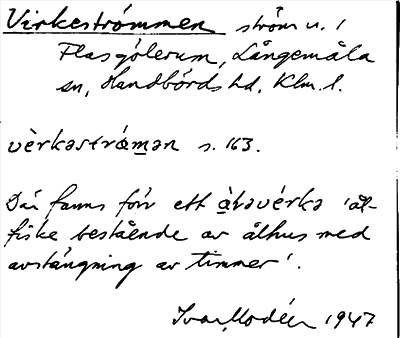 Virkeströmmen ström n. i
Flasgölerum, Långemåla
sn, Handbörds hd, Klm. l.
vèrkəstrámən s. 163.
Där fanns förr ett àləvérkə 'ål-
fiske bestående av ålhus med
avstängning av timmer'.
Ivar Modéer 1947